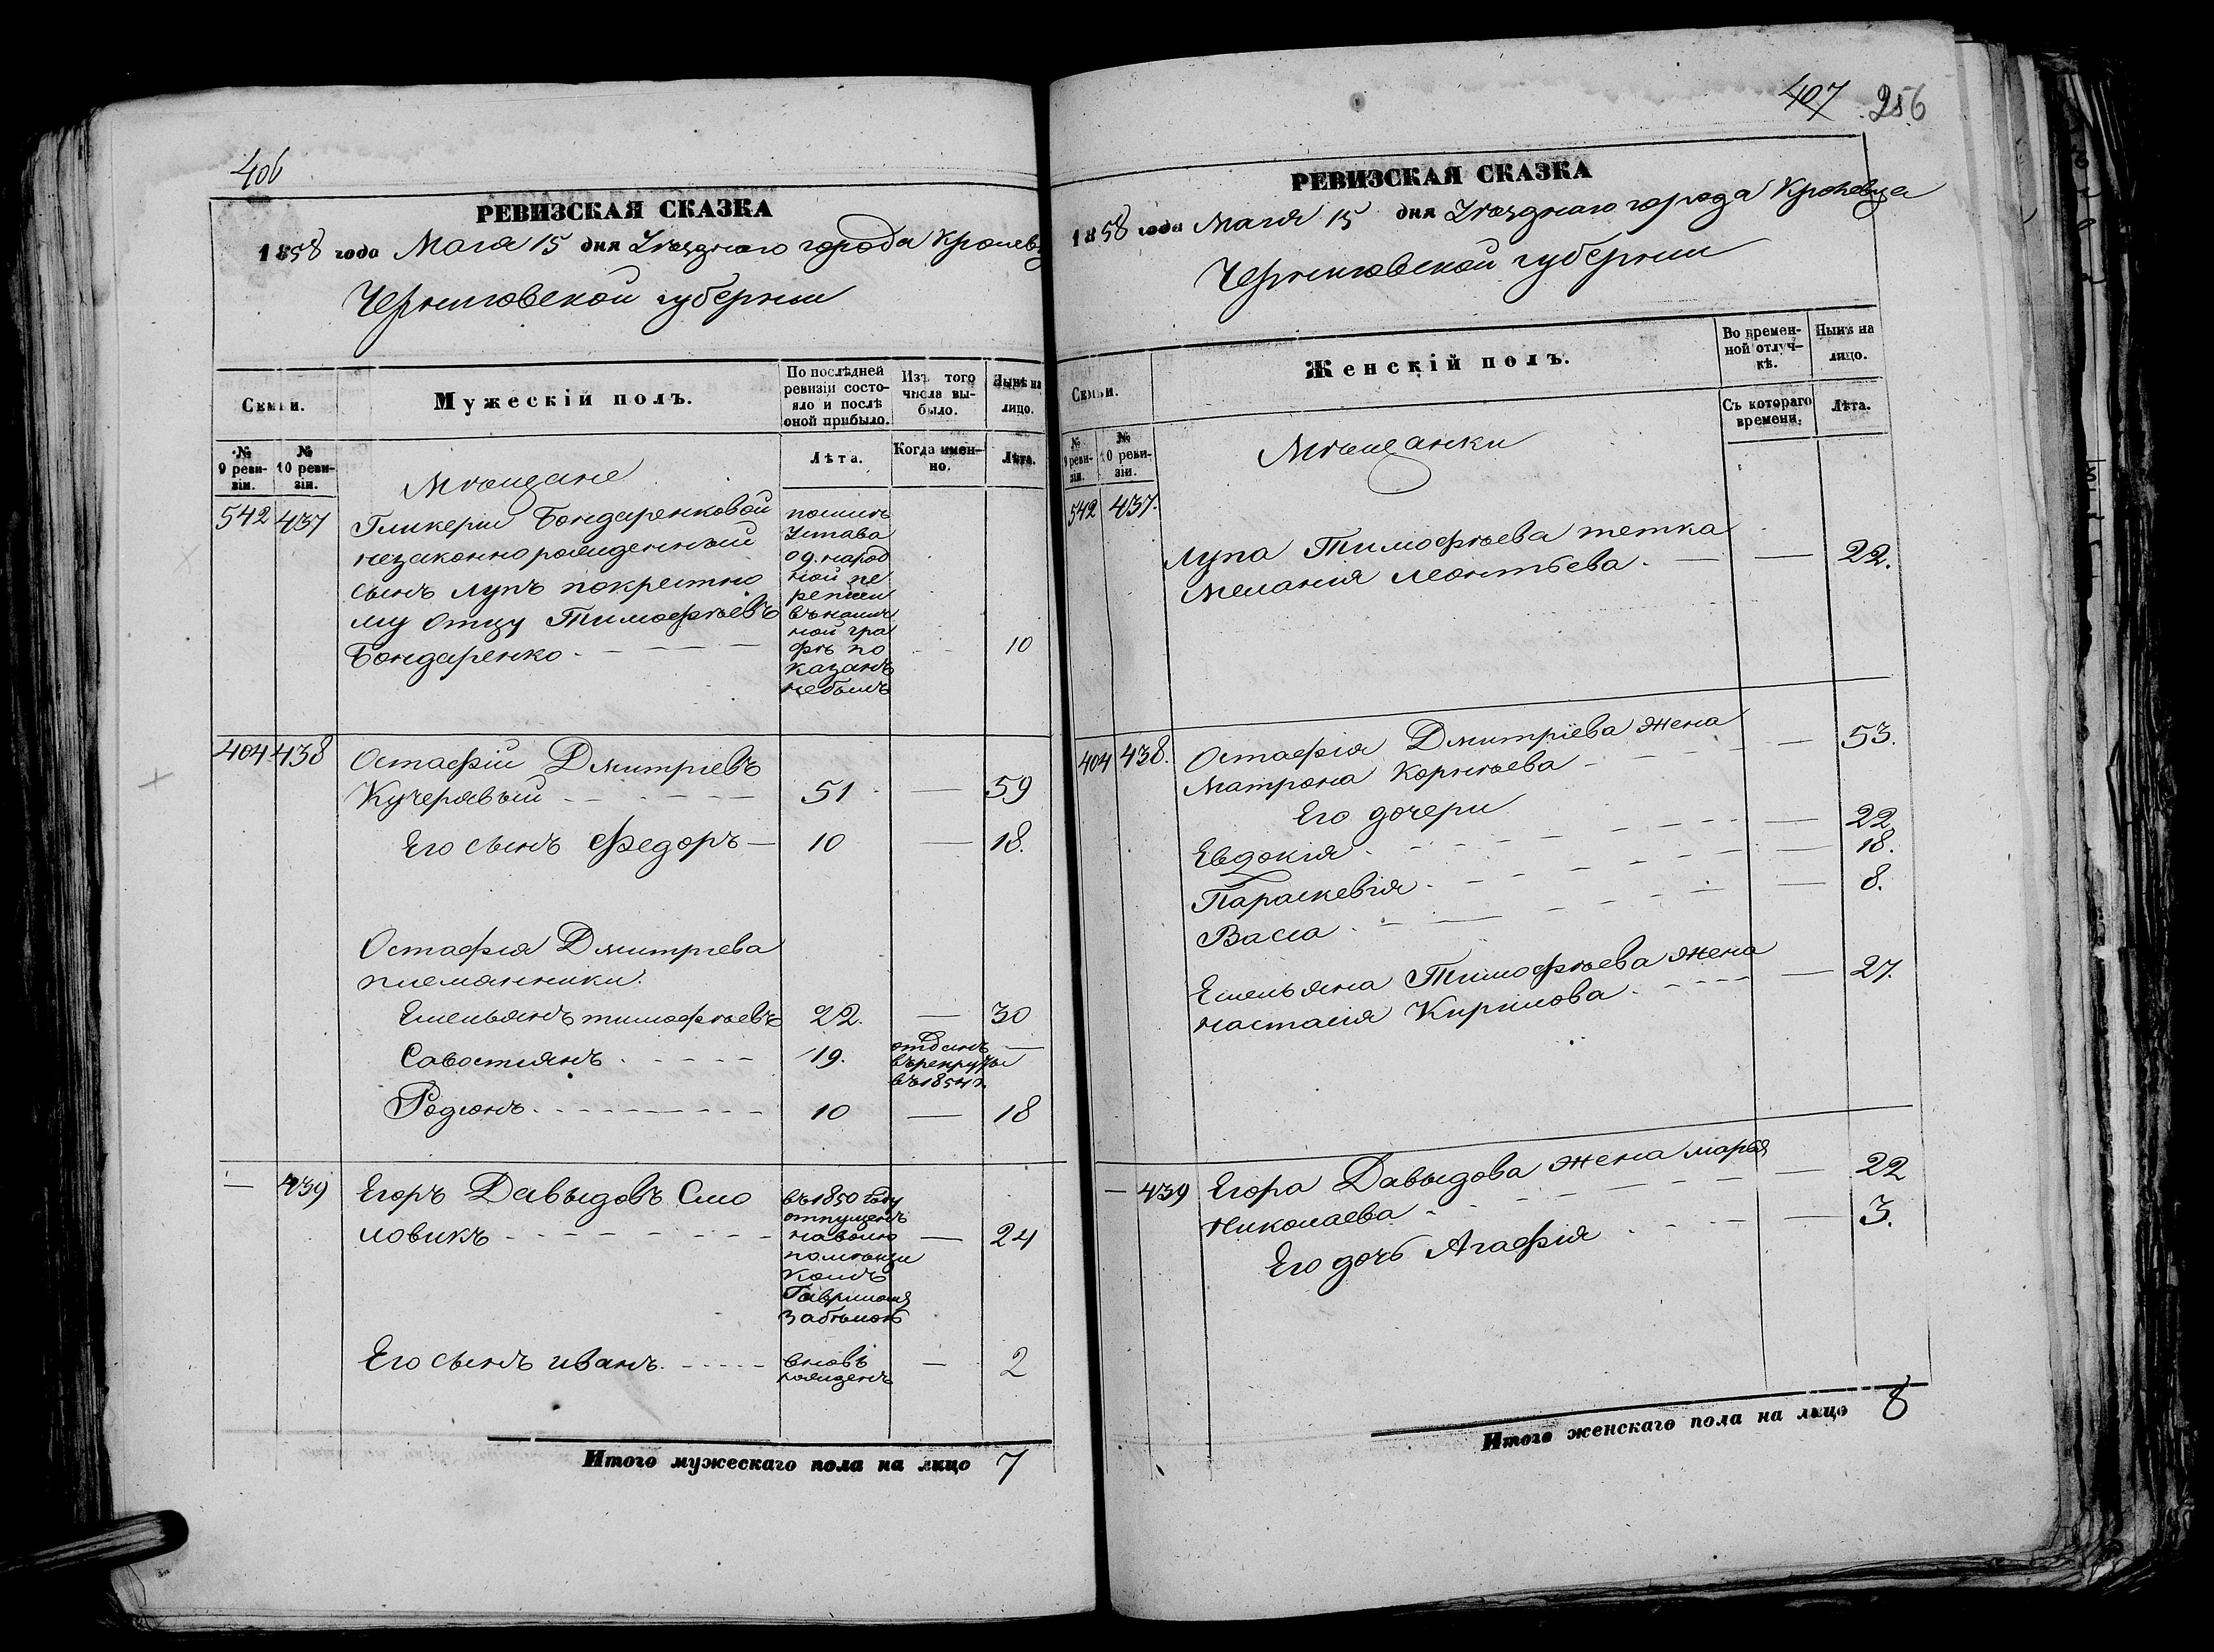 406
РЕВИЗСКАЯ СКАЗКА
1858 года Маія 15 дня Уѣзднаго города Кролевц
Черниговской губерніи
Семьи.
Мужескій полъ.
По послѣдней ревизіи состояло и послѣ оной прибыло.
Изъ того числа выбыло.
Нынѣ на лицо.
№ 9 ревизіи.
№ 10 ревизіи.
Лѣта.
Когда именно.
Лѣта.
Мѣщане
542 437 Гликеріи Бондаренковой
незаконно рожденный
сынъ Лупъ покрестно
му Отцу Тимофѣевъ
Бондаренко - - - - 10
Устава
о д. народ
ной пе
реписи
въ
ной гра
фѣ по
казанъ
небылъ
404 438 Остафій Дмитріевъ
Кучерявый - - - - 51 — 59
Его сынъ Федоръ — 10 — 18.
Остафія Дмитріева
племянники.
Емельянъ тимофѣевъ 22. — 30
Савостіянъ - - - - 19. отданъ —
върекруты
въ1854 г.
Родіонъ - - - - 10 — 18
— 439 Егоръ Давыдовъ Смо
ловикъ - - - - — 24
въ1850 году
отпущенъ
наволю
помѣщи
комъ
Гавриломъ
Забѣлою
Его сынъ иванъ - - - - вновь — 2
рожденъ
Итого мужескаго пола на лицо 7
407 256
РЕВИЗСКАЯ СКАЗКА
1858 года Маія 15 дня Уѣзднаго города Кролевца
Черниговской губерніи
Семьи.
Женскій полъ.
Во временной отлучкѣ.
Нынѣ на лицо.
№ 9 ревизіи.
№ 10 ревизіи.
Съ котораго времени.
Лѣта.
Мѣщанки
542 437.
Лупа Тимофѣева тетка
Меланія Леонтьева - — — 22.
404 438. Остафія Дмитріева жена
Матрона Корнѣева - - — 53.
Его дочери
Евдокія - - - - — 22
Параскевія - - - - — 18.
Васса - - - - — 8.
Емельяна Тимофѣева жена
настасія Кирилова - - - - — 27.
— 439 Егора Давыдова жена марья
Николаева - - - - — 22
Его дочь Агафія - - - - — 3.
Итого женскаго пола на лицо 8